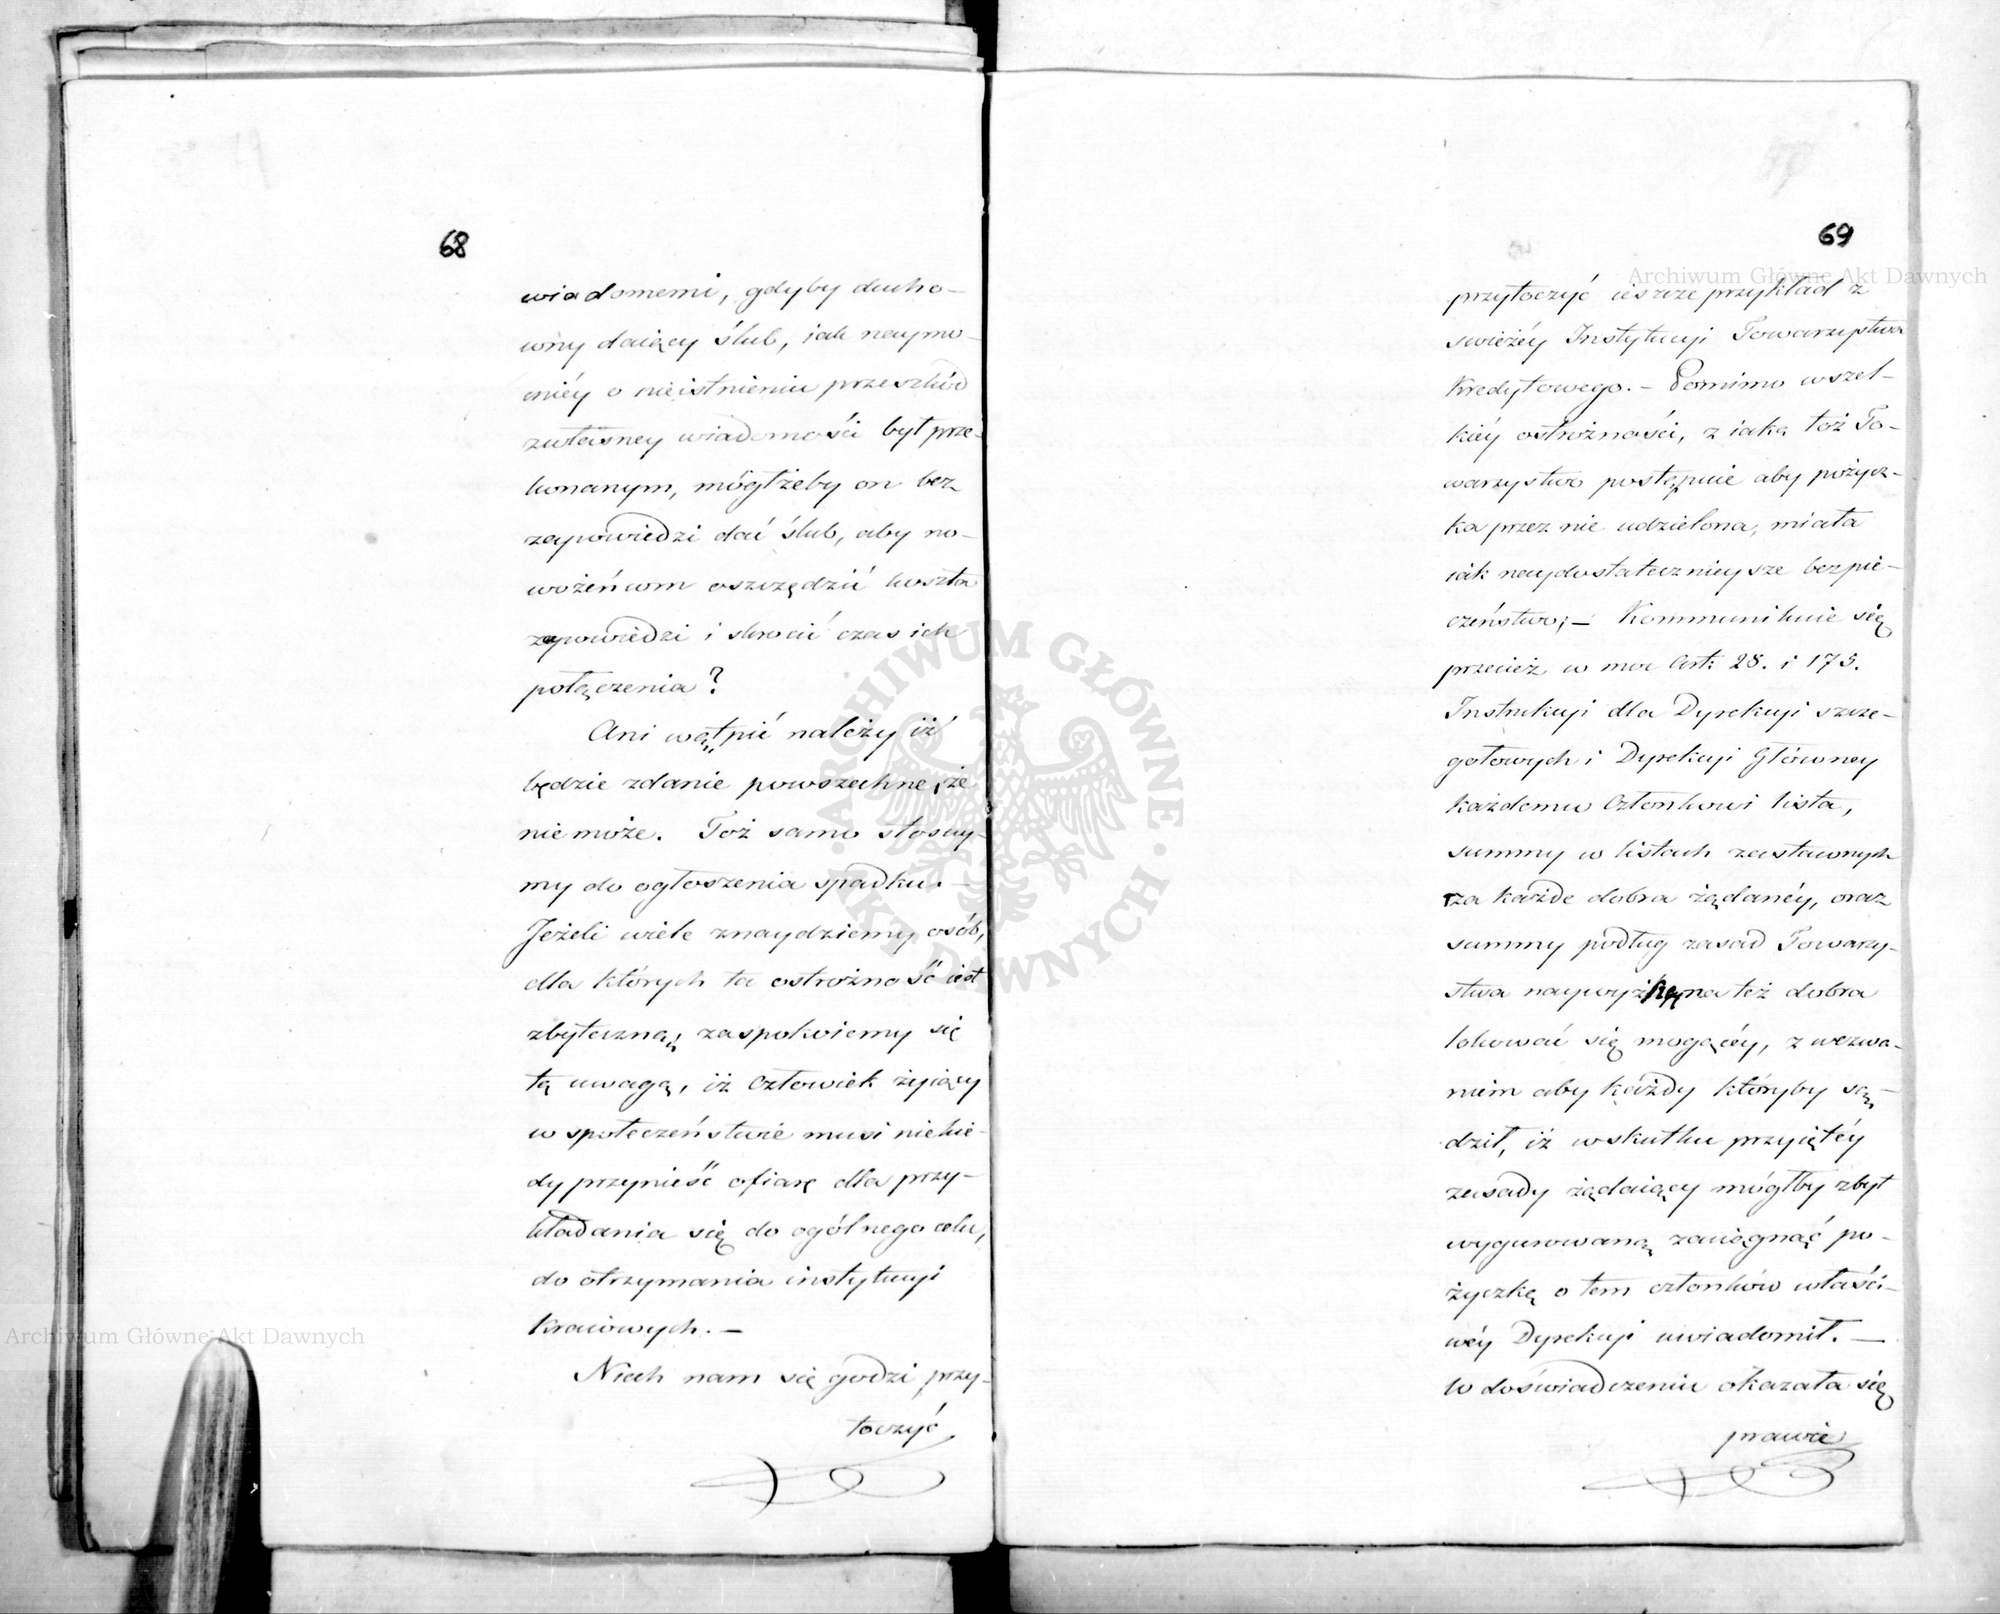 68
wiadomemi, gdyby ducho-
wny daiący ślub, iak naymo-
cniéy o nieistnieniu przeszkód
zwłasney wiadomości był prze-
konanym, mógłżeby on bez
zapowiedzi dać ślub, aby no-
wożeńcom oszczędzić koszta
zapowiedzi i skrócić czas ich
połączenia?
Ani wątpić należy iż
będzie zdanie powszechne, że
nie może. Toż samo stosuy-
my do ogłoszenia spadku. -
Jeżeli wiele znaydziemy osób,
dla których ta ostrożność iest
zbyteczną, zaspokoiemy się
tą uwagą, iż człowiek żyiący
w społeczeństwie musi niekie-
dy przynieść ofiarę dla przy-
kładania się do ogólnego celu,
do otrzymania instytucyi
kraiowych. -
Niech nam się godzi przy-
toczyć
69
przytoczyć ieszcze przykład z
swieżéy Instytucyi Towarzystwa
Kredytowego. - Pomimo wszel-
kiéy ostrożności, z iaką toż To-
warzystwo postępuie aby pożycz-
ka przez nie udzielona, miała
iak naydostatecznieysze bezpie-
czeństwo; - Kommunikuie się
przecież w moc Art: 28. i 175.
Instrukcyi dla Dyrekcyi szcze-
gołowych i Dyrekcyi Główney
każdemu Członkowi lista,
summy w listach zastawnych
za każde dobra żądanéy, oraz
summy podług zasad Towarzy-
stwa naywyższey na też dobra
lokować się mogącéy, z wezwa-
niem aby każdy któryby są-
dził, iż w skutku przyiętéy
zasady żądaiący mógłby zbyt
wygurowaną zaciągnąć po-
życzkę o tem członków właści-
wéy Dyrekcyi uwiadomił. -
W doświadczeniu okazała się
prawie
Archiwum Główne Akt Dawnych
Archiwum Główne Akt Dawnych
· ARCHIWUM GŁÓWNE · AKT DAWNYCH